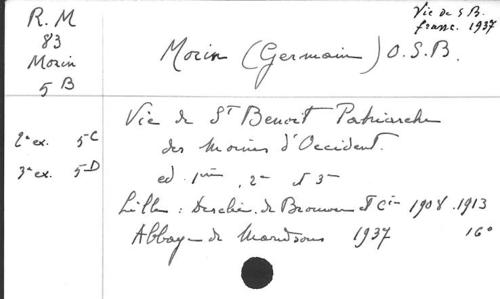 R. M
83
Morin
5 B
Vie de S B.
franc. 1937
Morin (Germain) O.S.B.
Vie de St Benoit Patriarche
des Moines d'Occident.
2e ex. 5C
3e ex. 5D
ed. 1ère, 2e et 3e
Lille: Desclée de Brouwer et Cie 1908.1913
Abbaye de Maredsous 1937 16°